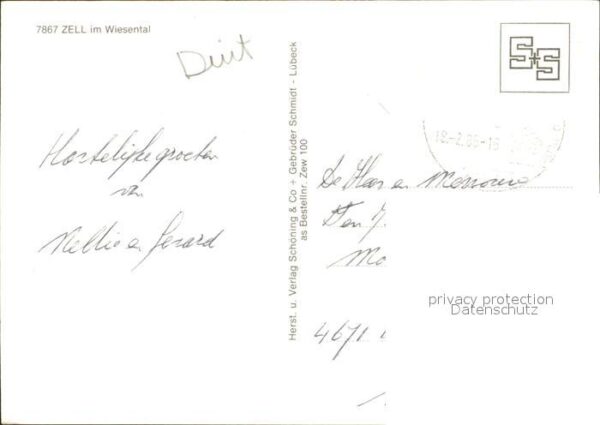 7867 ZELL im Wiesental
Duit
Hartelijke groeten
van
Nellie en Gerard
Herst. u. Verlag Schöning & Co + Gebrüder Schmidt - Lübeck
as Bestellnr. Zew 100
S+S
De Heer en Mevrouw
privacy protection
Datenschutz
4671